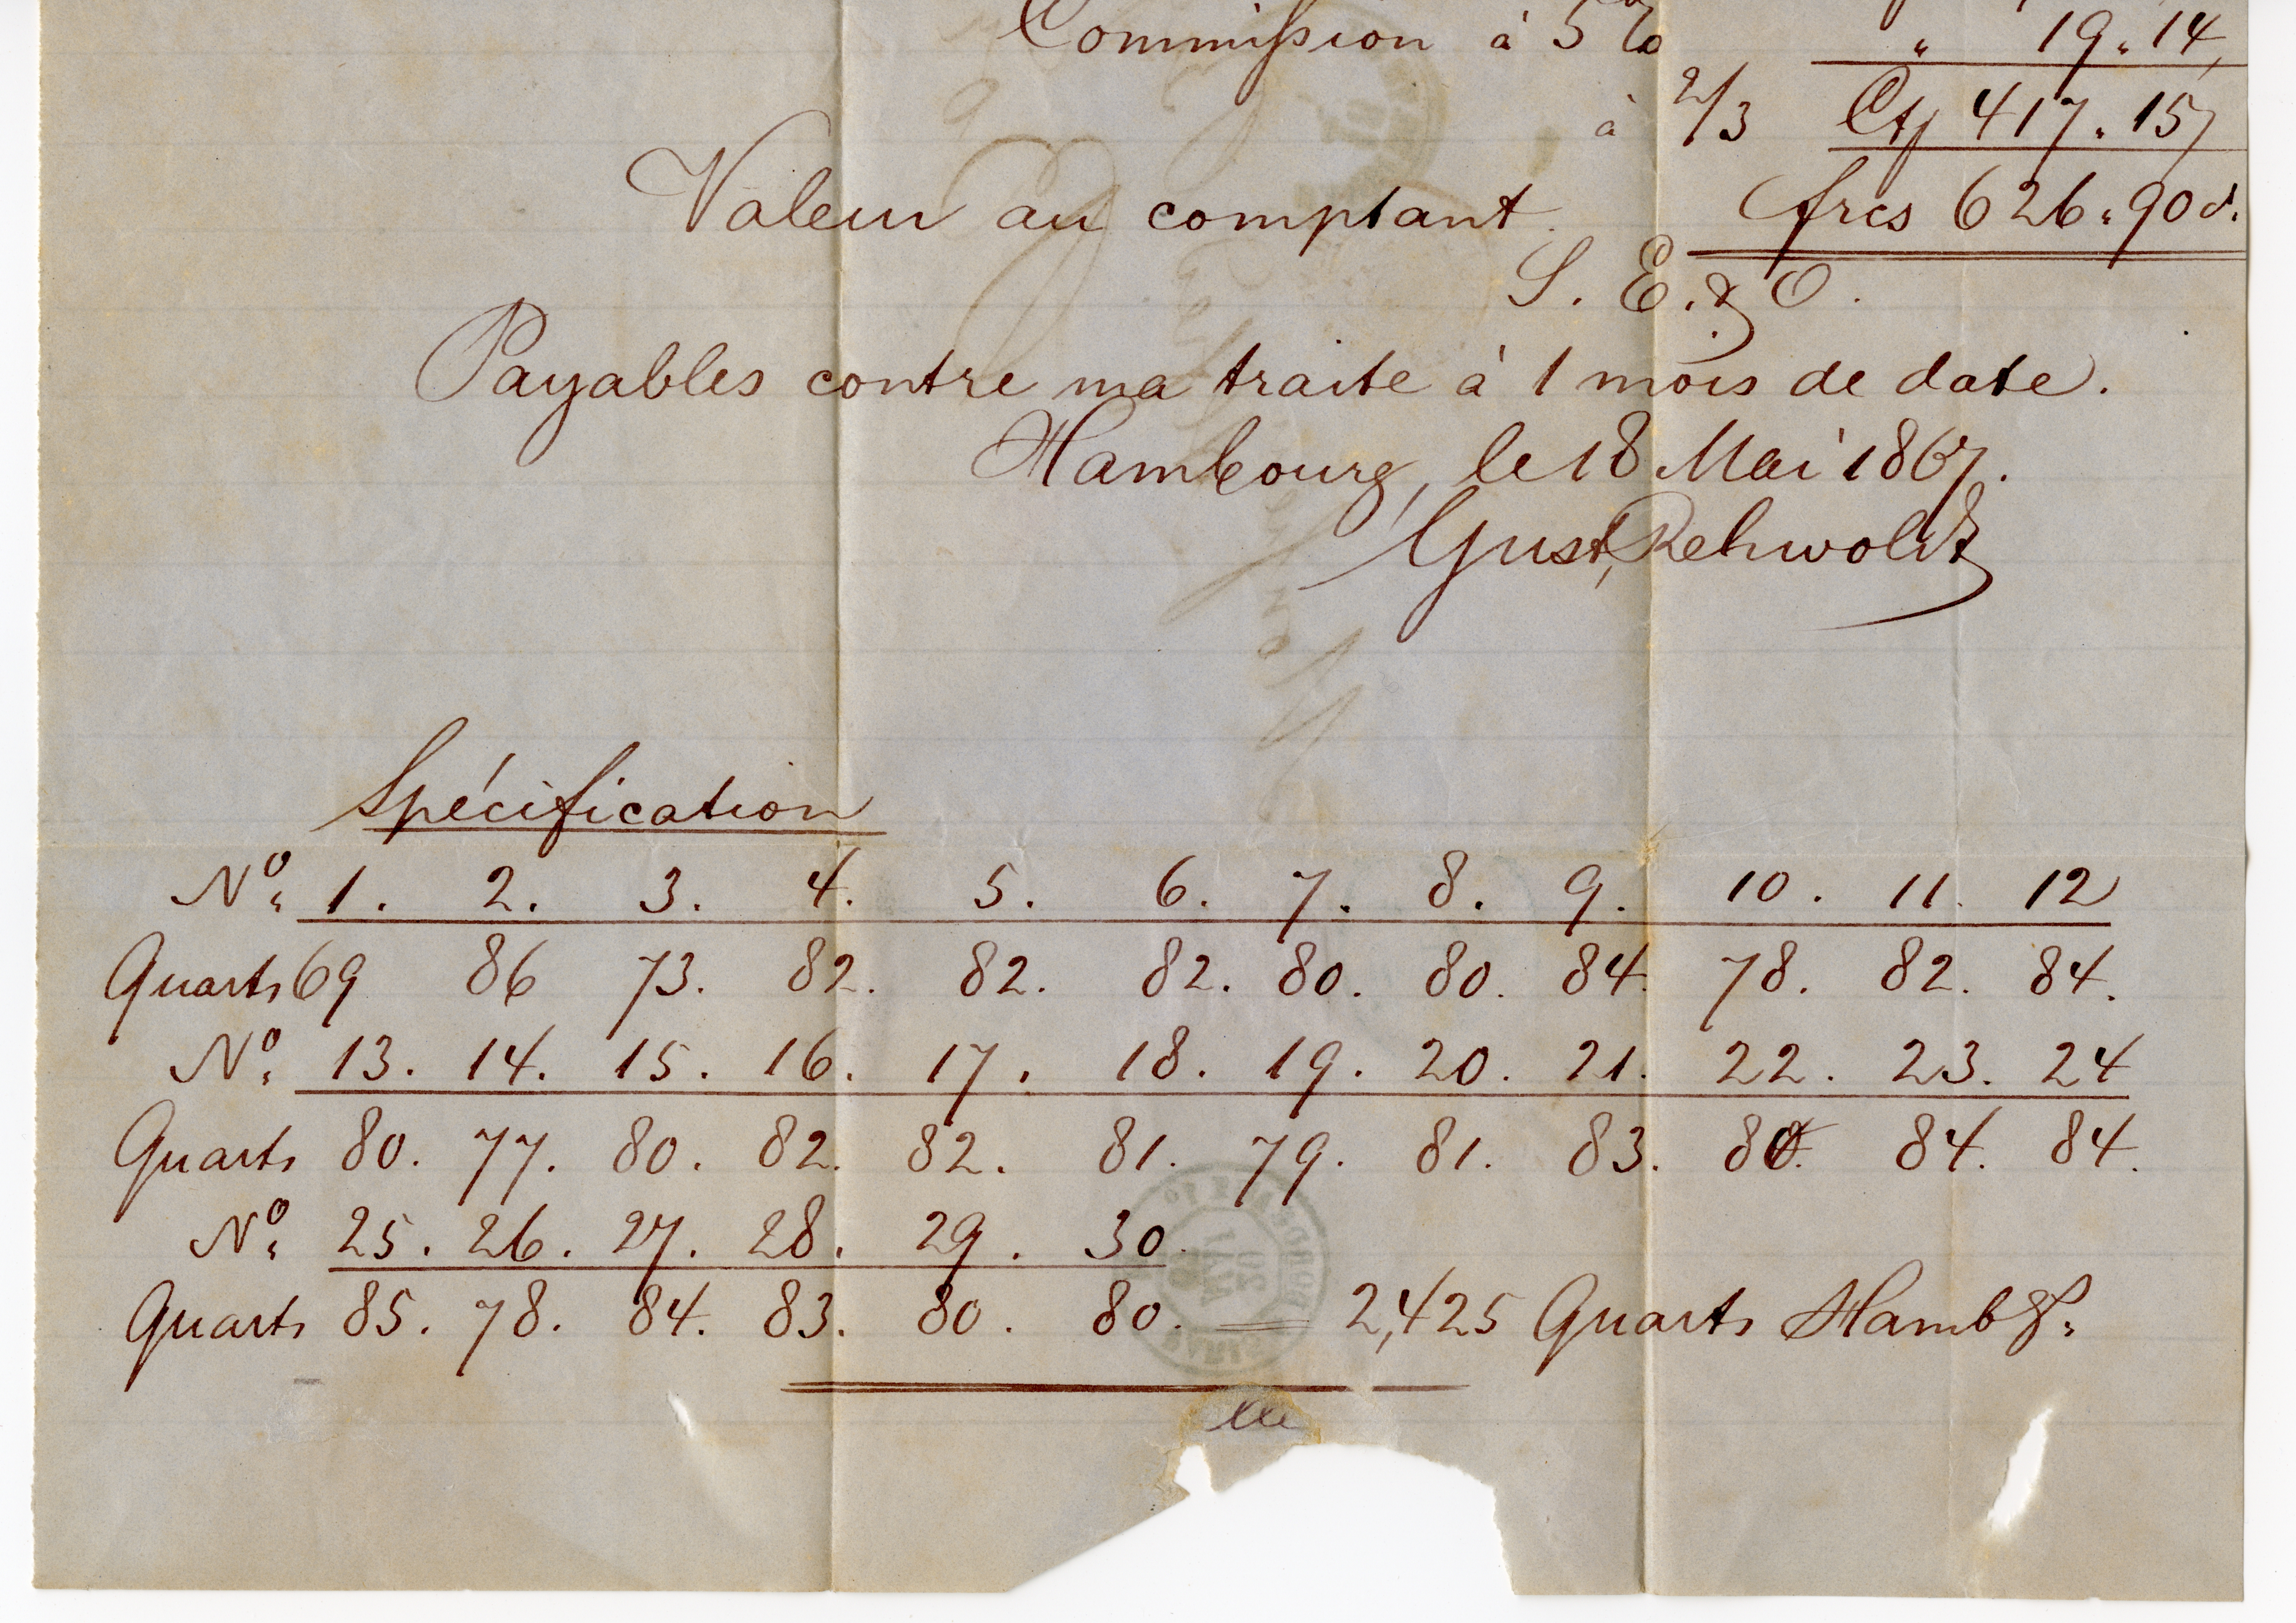 Commission à 5% " 19 " 14,
à 2/3 Ct 417 " 15
Valeur au comptant. frcs 626 " 90 d.
S. E. & O.
Payables contre ma traite à 1 mois de date.
Hambourg, le 18 Mai 1867.
Gust. Rehwoldt
Spécification
No. 1. 2. 3. 4. 5. 6. 7. 8. 9. 10. 11. 12
Quarts 69 86 73. 82. 82. 82. 80. 80. 84. 78. 82. 84.
No. 13. 14. 15. 16. 17. 18. 19. 20. 21. 22. 23. 24
Quarts 80. 77. 80. 82. 82. 81. 79. 81. 83. 80. 84. 84.
No. 25. 26. 27. 28. 29. 30.
Quarts 85. 78. 84. 83. 80. 80. = 2,425 Quarts Hambg.